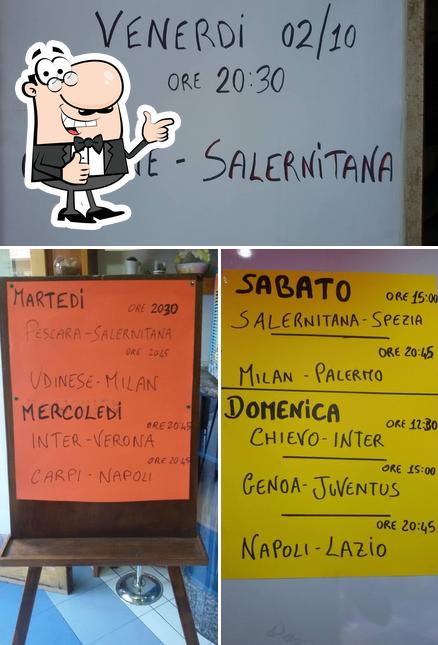 VENERDÌ 02/10
ORE 20:30
- SALERNITANA
MARTEDÌ
ORE 2030
PESCARA-SALERNITANA
ORE 20:45
UDINESE-MILAN
MERCOLEDÌ
ORE 20:45
INTER-VERONA
ORE 20:45
CARPI-NAPOLI
SABATO
ORE 15:00
SALERNITANA-SPEZIA
ORE 20:45
MILAN-PALERMO
DOMENICA
ORE 12:30
CHIEVO-INTER
ORE 15:00
GENOA-JUVENTUS
ORE 20:45
NAPOLI-LAZIO